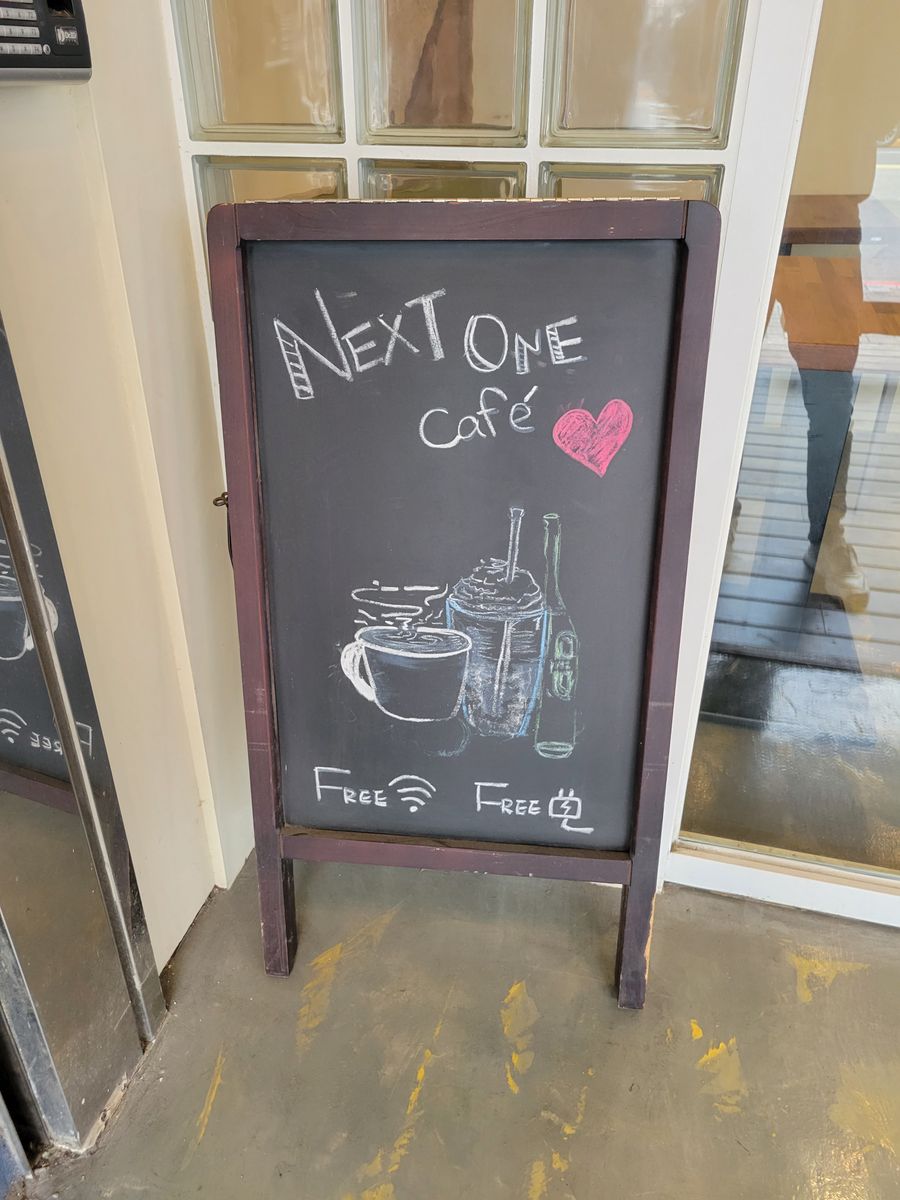 NEXT ONE
Café
FREE
FREE